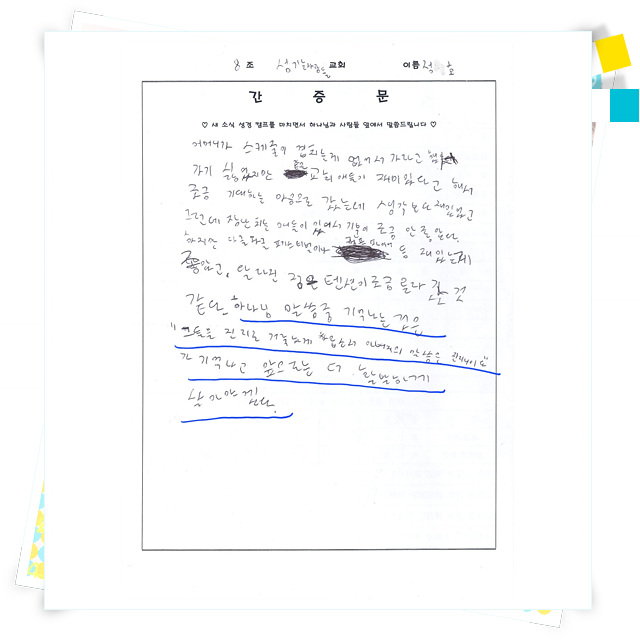 8 조 섬기는 교회 이름
간 증 문
♡ 새 소식 성경 캠프를 마치면서 하나님과 사람들 앞에서 말씀드립니다 ♡
어머니가 스케줄이 겹치는게 없어서 가라고
가기 싫었지만 교회 애들이 재미있다고 해서
조금 기대하는 마음으로 갔는데 생각보다 재밌었고
그런데 장난 치는 애들이 있어서 기분이 조금 안 좋았다.
하지만 등 재밌는게
좋았고, 달라진 점은 텐션이 조금 올라간 것
같다. 하나님 말씀중 기억나는 것은
"그들을 진리로 거룩하게 하옵소서 아버지의 말씀은 진리니이다"
가 기억나고 앞으로는 더
살아야겠다.